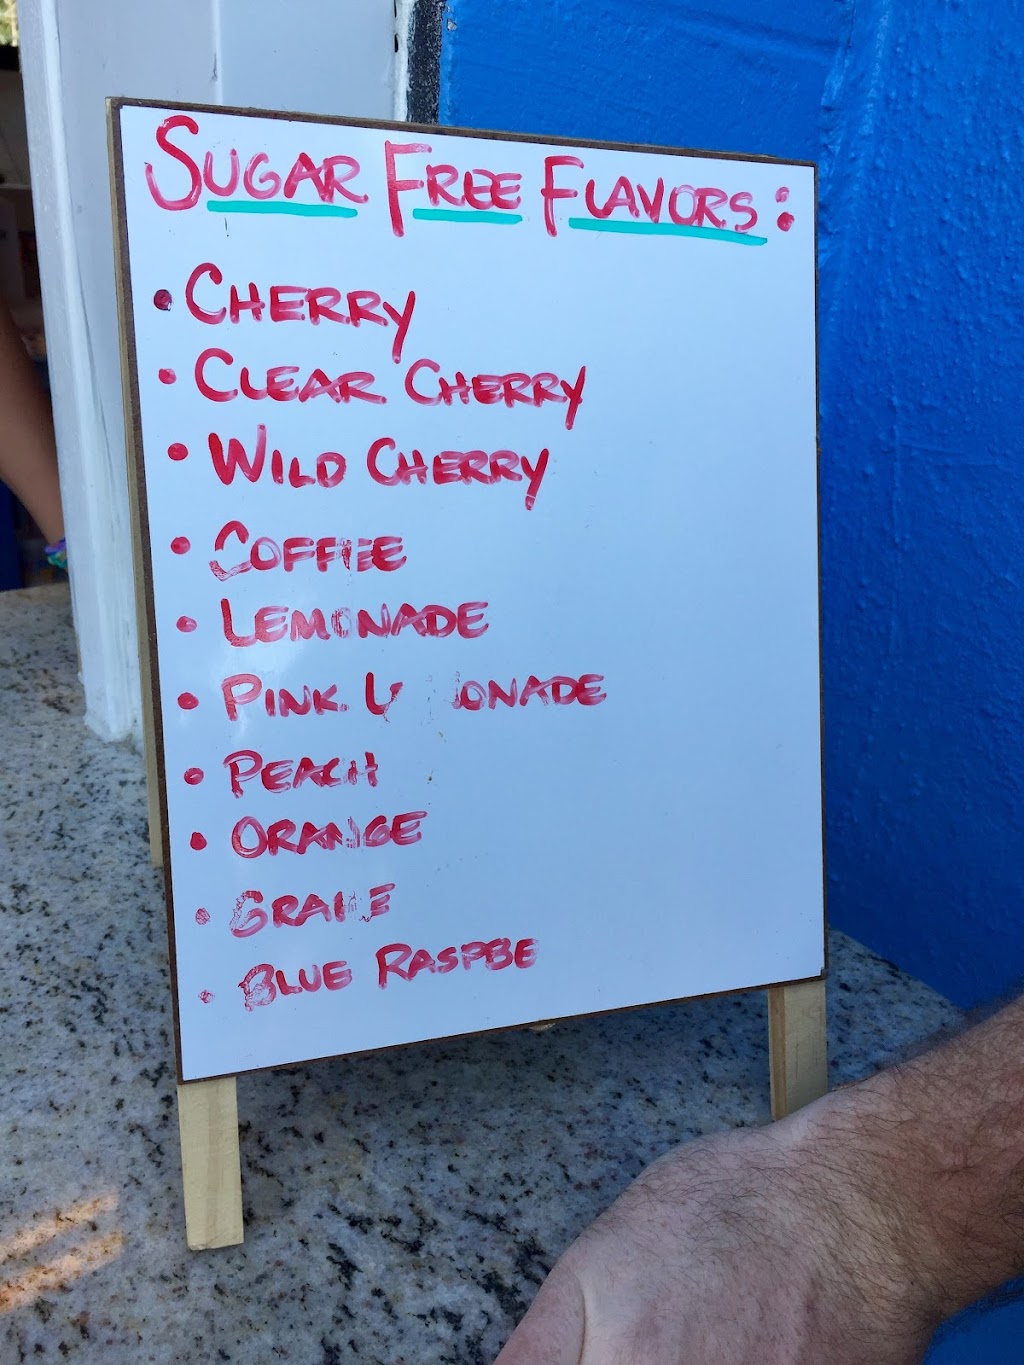 SUGAR FREE FLAVORS:
• CHERRY
• CLEAR CHERRY
• WILD CHERRY
• COFFEE
• LEMONADE
• PINK LEMONADE
• PEACH
• ORANGE
• GRAPE
• BLUE RASPBE